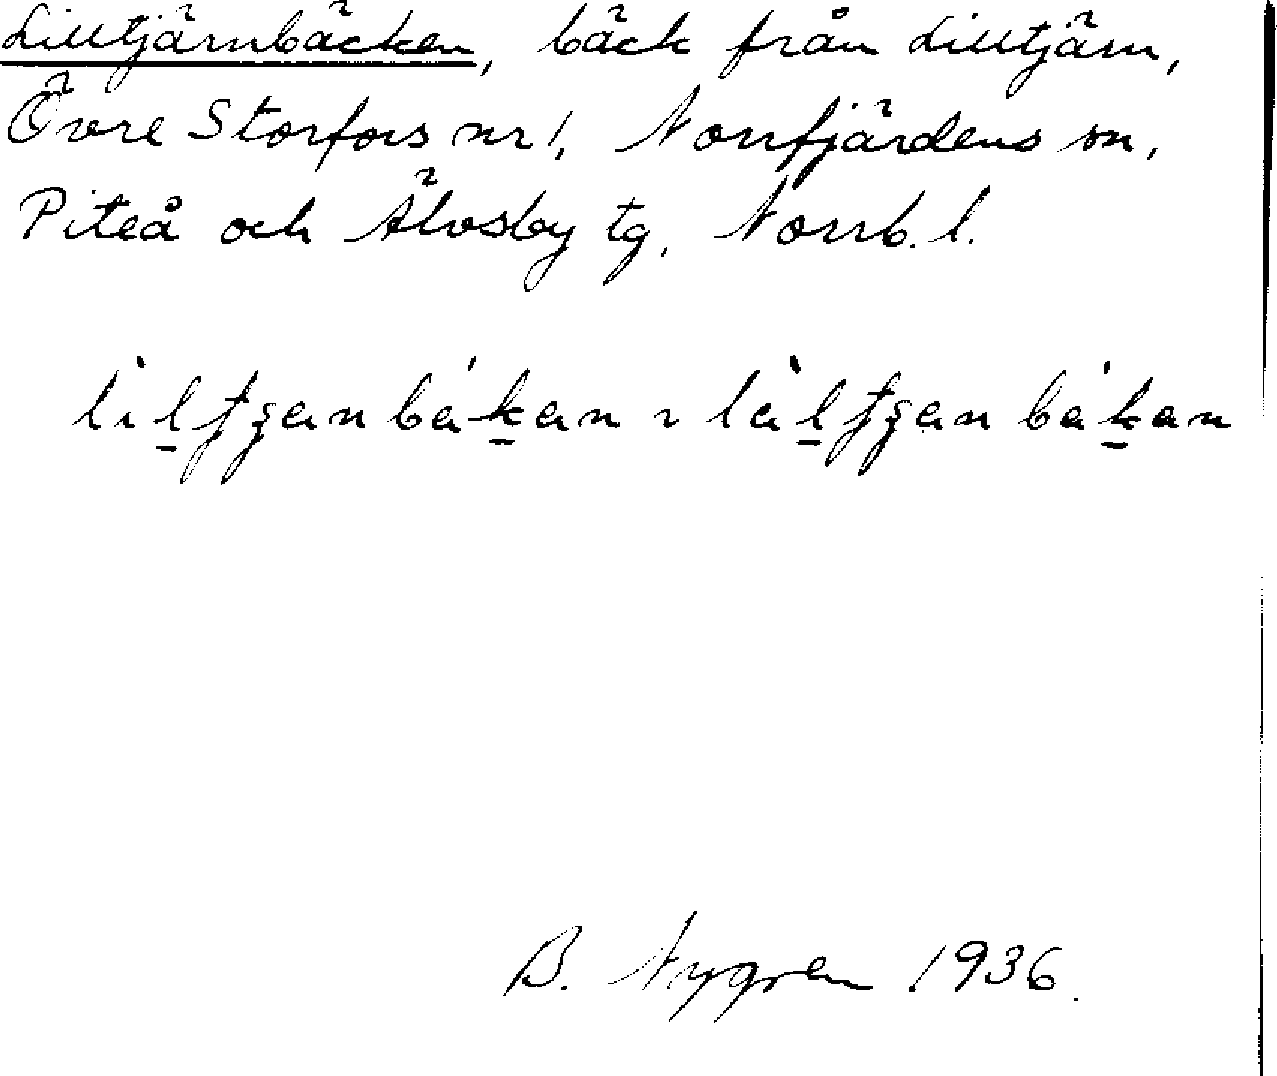 Lilltjärnbäcken, bäck från Lilltjärn,
Övre Storfors nr 1, Norrfjärdens sn,
Piteå och Älvsby tg, Norrb. l.
B. Nygren 1936.